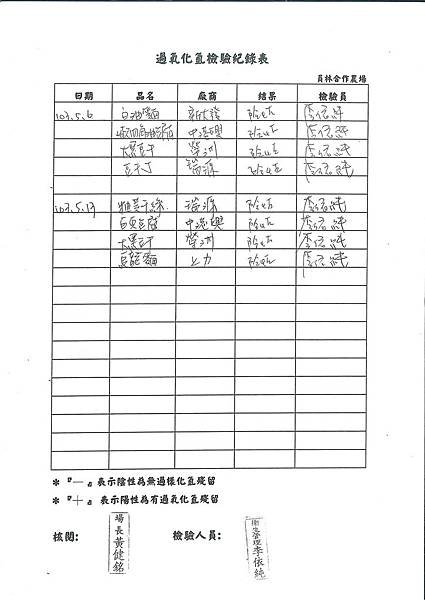 過氧化氫檢驗紀錄表
員林合作農場
日期 品名 廠商 結果 檢驗員
103.5.6 白油麵 陰性 李依純
中港興 陰性 李依純
大黑豆干 榮洲 陰性 李依純
豆干丁 瑞源 陰性 李依純
103.5.13 瑞源 陰性 李依純
中港興 陰性 李依純
大黑豆干 榮洲 陰性 李依純
上力 陰性 李依純
* 『—』表示陰性為無過樣化氫殘留
* 『+』表示陽性為有過氧化氫殘留
核閱: 場長黃健銘 檢驗人員: 衛生管理李依純